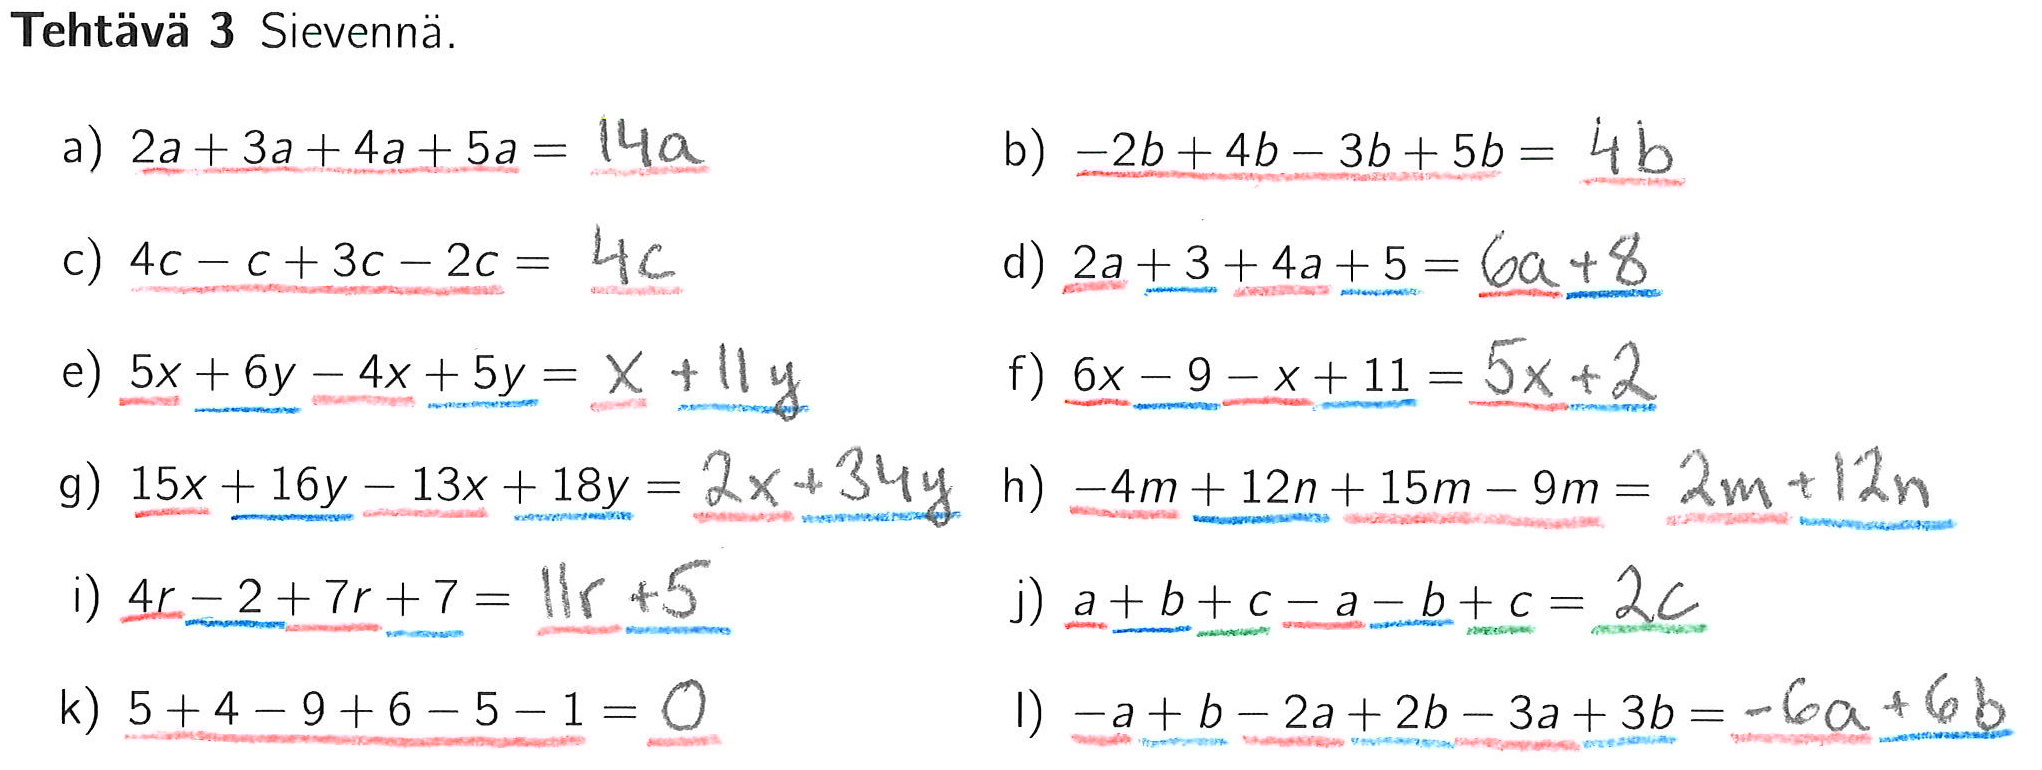 Tehtävä 3 Sievennä.
a) 2a + 3a + 4a + 5a = 14a
b) −2b + 4b − 3b + 5b = 4b
c) 4c − c + 3c − 2c = 4c
d) 2a + 3 + 4a + 5 = 6a + 8
e) 5x + 6y − 4x + 5y = x + 11y
f) 6x − 9 − x + 11 = 5x + 2
g) 15x + 16y − 13x + 18y = 2x + 34y
h) −4m + 12n + 15m − 9m = 2m + 12n
i) 4r − 2 + 7r + 7 = 11r + 5
j) a + b + c − a − b + c = 2c
k) 5 + 4 − 9 + 6 − 5 − 1 = 0
l) −a + b − 2a + 2b − 3a + 3b = −6a + 6b